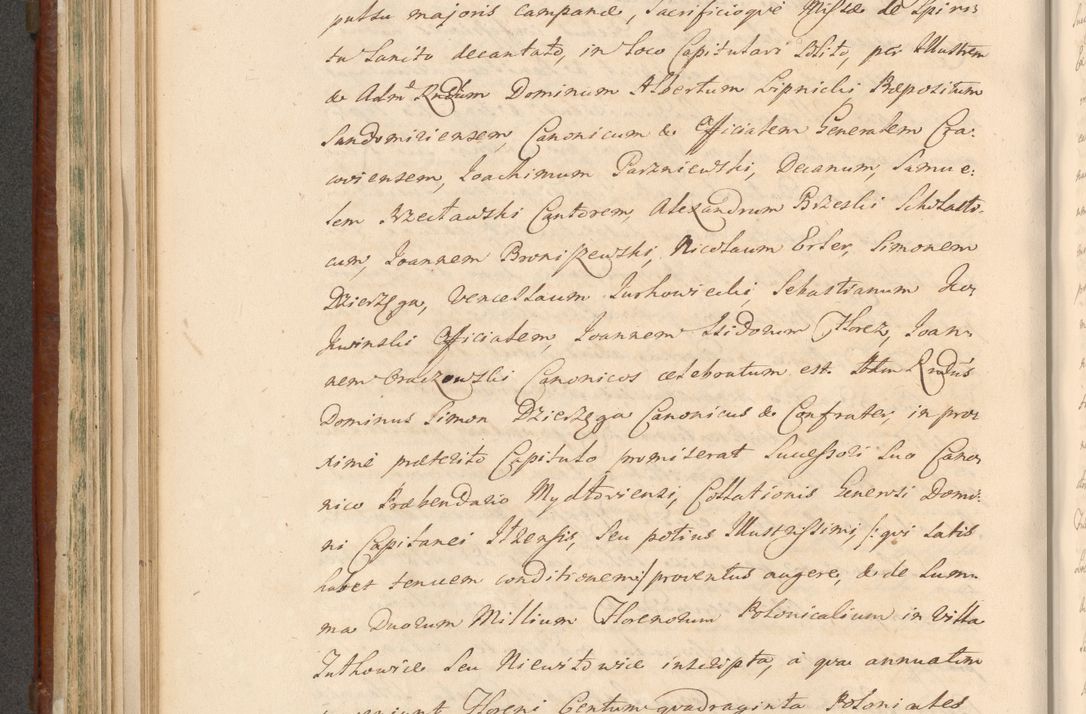 pulsu majoris campanæ, Sacrificioqve Missæ de Spiri:
tu Sancto decantato, in Loco Capitulari solito, per Illustrem
& Adm. Rndum Dominum Albertum Lipnicki Præpositum
Sandomiriensem, Canonicum & Officialem Generalem Cra:
coviensem, Joachimum Parzniewski, Decanum, Samue:
lem Rzecławski Cantorem, Alexandrum Brzeski Scholasti:
cum, Joannem Broniszewski, Nicolaum Erler, Simonem
Dzierzęga, Venceslaum Jurkowiecki, Sebastianum
Officialem, Joannem Isidorum Florez, Joan:
nem Oraczowski Canonicos celebratum est. Rndus
Dominus Simon Dzierzęga Canonicus & Confrater, in pro:
ximè præterito Capitulo promiserat Sucessori Suo Cano:
nico Præbendario Mydłoviensi, Collationis Generosi Domi:
ni Capitanei Ilzensis, Seu potius Illustrissimi, /: qvi Satis
habet tenuem conditionem :/ proventus augere, & de Sum:
ma Duorum Millium Florenorum Polonicalium in Villa
Jutkowice Seu Niewitowice inscripta, à qva annuatim
Floreni Centum qvadraginta Polonicales